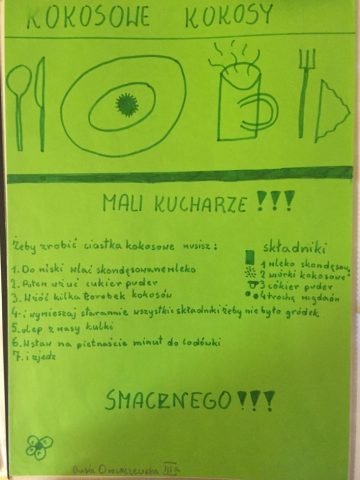 KOKOSOWE KOKOSY
MALI KUCHARZE !!!
żeby zrobić ciastka kokosowe musisz:
1. Do miski wlać skondęsowane mleko
2. Potem wżuć cukier puder
3. Wżóć kilka torebek kokosów
4. i wymieszaj starannie wszystkie składniki żeby nie było gródek
5. ulep z masy kulki
6. Wstaw na piętnaście minut do lodówki
7. i zjedz
składniki
1 mleko skondęsow
2 wiórki kokosowe
3 cókier puder
4 trochę migdałów
SMACZNEGO !!!
III